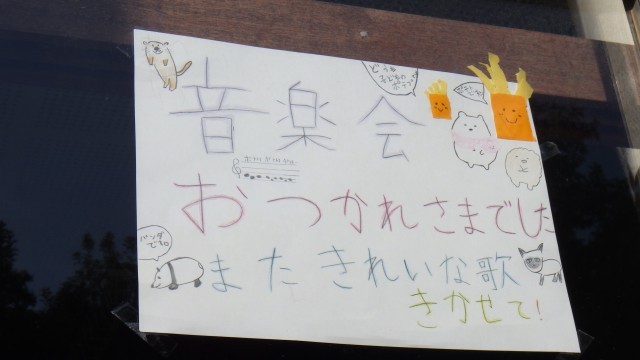 音楽会
おつかれさまでした
パンダ
です。
またきれいな歌
きかせて!